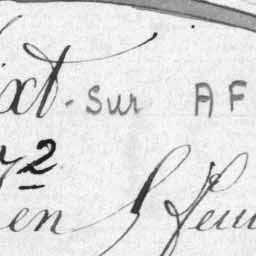 ixt-sur AF
72
en 5 feui